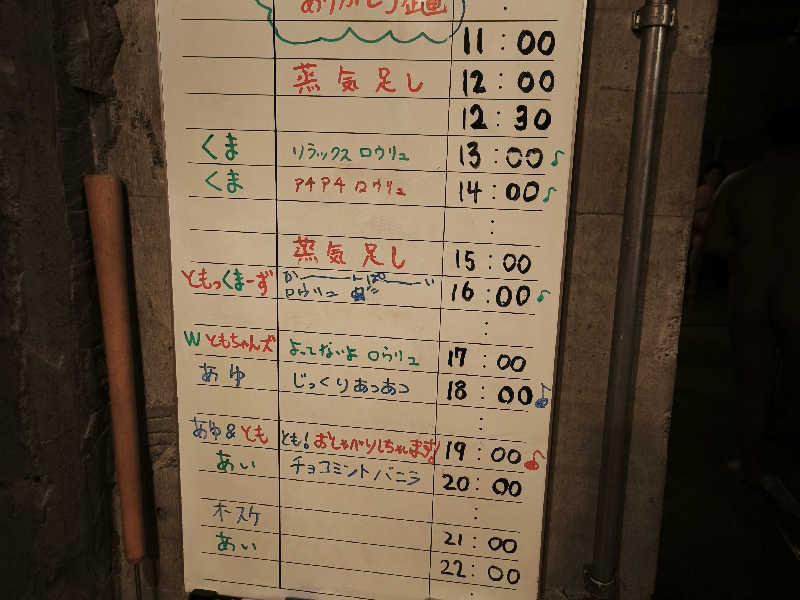 ありがとう企画 :
11:00
蒸気足し 12:00
12:30
くま リラックス ロウリュ 13:00♪
くま アチアチ ロウリュ 14:00♪
:
蒸気足し 15:00
ともっくまーず か〜んぱ〜い
ロウリュ 16:00♪
:
Wともちゃんズ よってないよ ロウリュ 17:00
あゆ じっくりあつあつ 18:00♪
:
あゆ&とも とも!おしゃべりしちゃいます! 19:00♪
あい チョコミントバニラ 20:00
オースケ :
あい 21:00
22:00
: